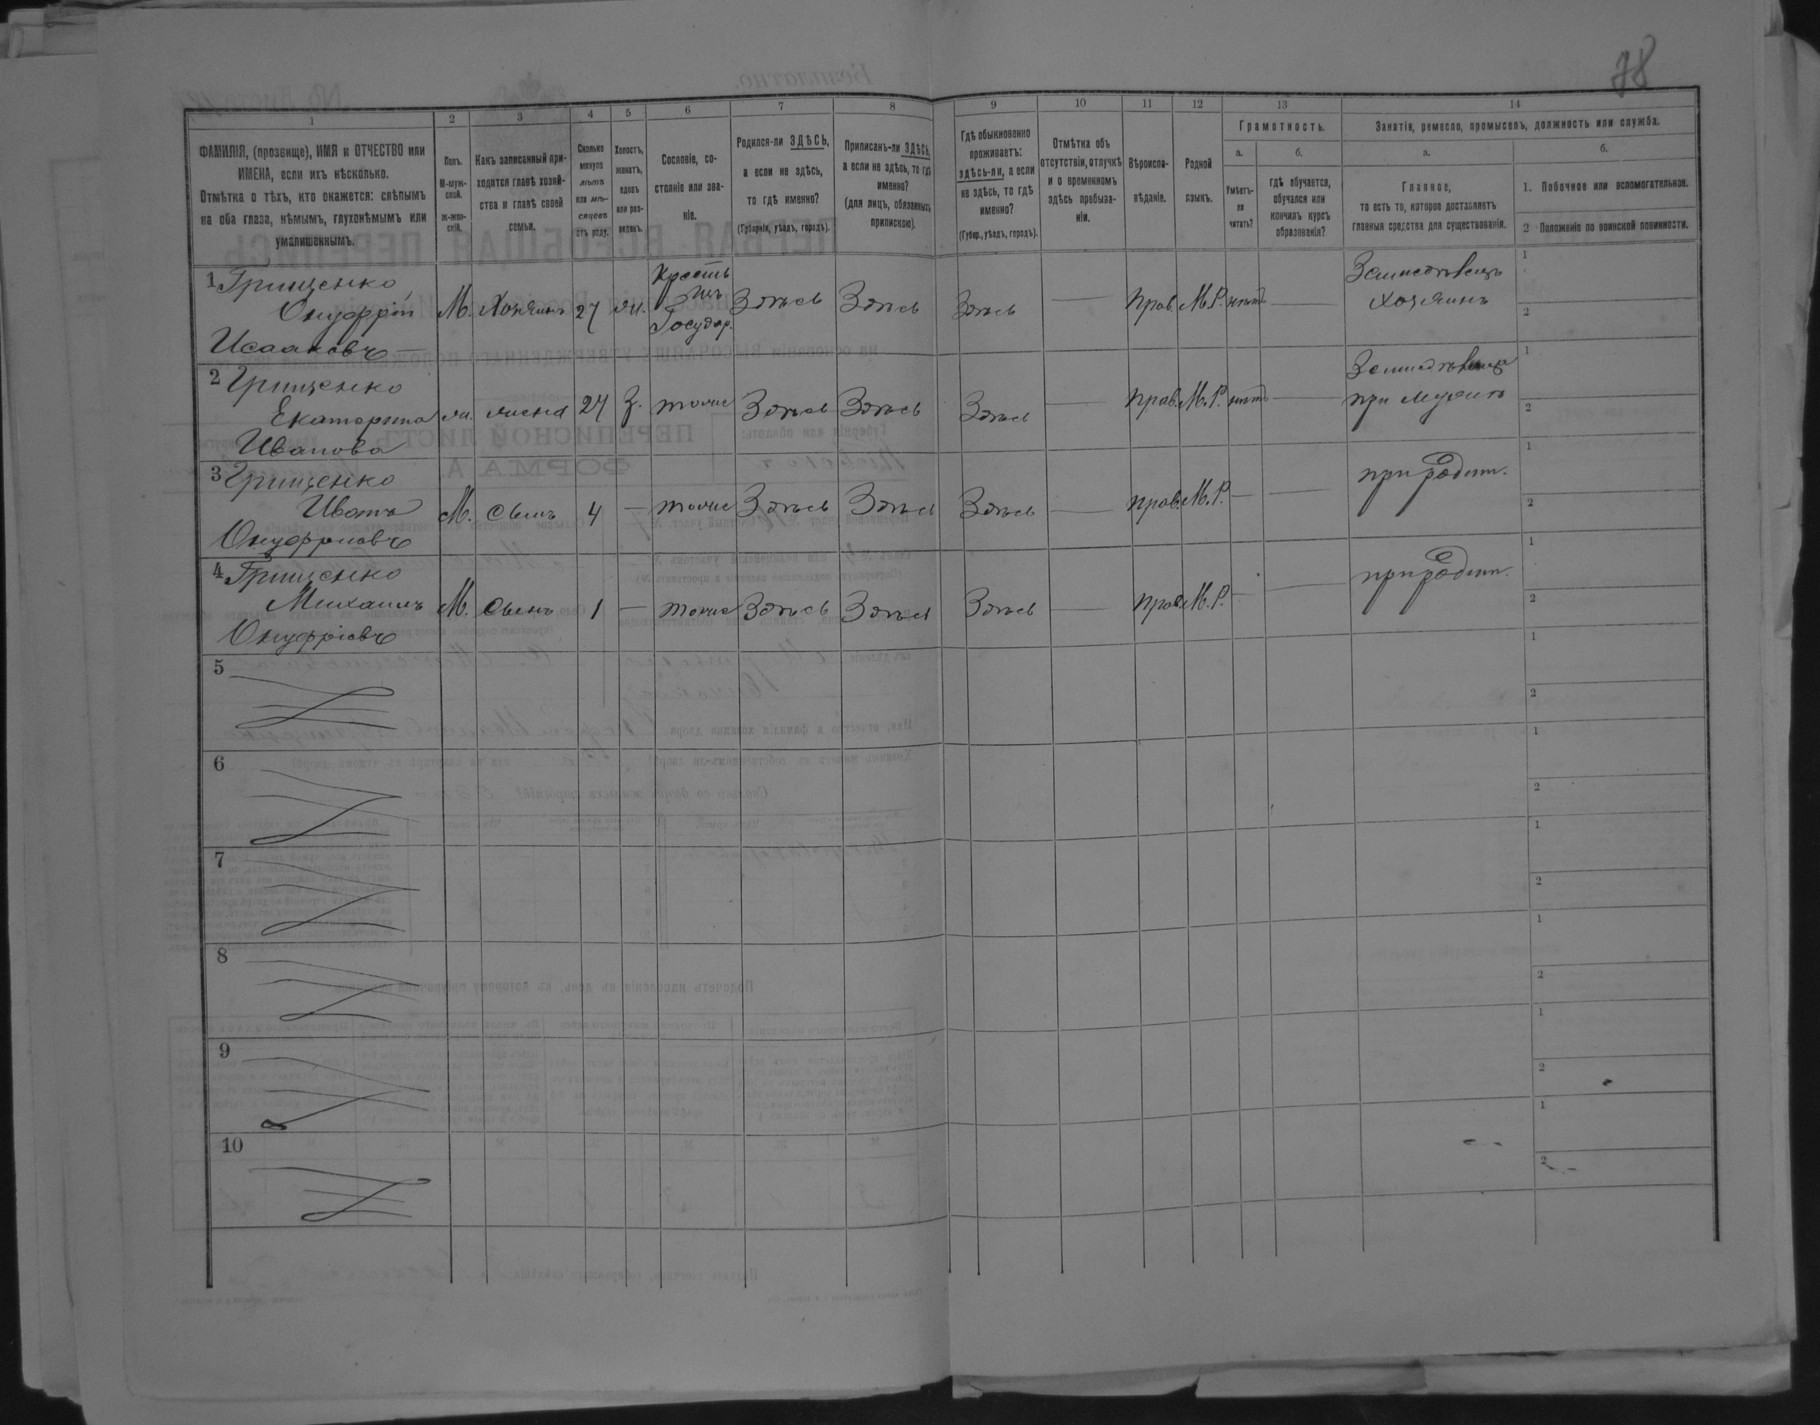 78
1 2 3 4 5 6 7 8 9 10 11 12 13 14
ФАМИЛІЯ, (прозвище), ИМЯ и ОТЧЕСТВО или
ИМЕНА, если ихъ нѣсколько.
Отмѣтка о тѣхъ, кто окажется: слѣпымъ
на оба глаза, нѣмымъ, глухонѣмымъ или
умалишеннымъ.
Полъ.
М-муж-
ской.
Ж-жен-
скій.
Какъ записанный при-
ходится главѣ хозяй-
ства и главѣ своей
семьи.
Сколько
минуло
лѣтъ
или мѣ-
сяцевъ
отъ роду.
Холостъ,
женатъ,
вдовъ
или раз-
веденъ.
Сословіе, со-
стояніе или зва-
ніе.
Родился-ли ЗДѢСЬ,
а если не здѣсь,
то гдѣ именно?
(Губернія, уѣздъ, городъ).
Приписанъ-ли ЗДѢСЬ,
а если не здѣсь, то гдѣ
именно?
(для лицъ, обязанныхъ
припискою).
Гдѣ обыкновенно
проживаетъ:
здѣсь-ли, а если
не здѣсь, то гдѣ
именно?
(Губер., уѣздъ, городъ).
Отмѣтка объ
отсутствіи, отлучкѣ
и о временномъ
здѣсь пребыва-
ніи.
Вѣроиспо-
вѣданіе.
Родной
языкъ.
Грамотность.
а.
б.
Умѣетъ-
ли
читать?
гдѣ обучается,
обучался или
кончилъ курсъ
образованія?
Занятія, ремесло, промыселъ, должность или служба.
а.
б.
Главное,
то есть то, которое доставляетъ
главныя средства для существованія.
1. Побочное или вспомогательное.
2 Положеніе по воинской повинности.
1 Грищенко
Онуфрій
Исааковъ
М. Хозяинъ 27 ж. Крестья
нъ
Государ. Здѣсь Здѣсь Здѣсь — Прав. М.Р. нѣтъ —
Земледѣлецъ
хозяинъ
1
2
2 Грищенко
Екатерина
Иванова
ж. жена 24 З. тоже Здѣсь Здѣсь Здѣсь — Прав. М.Р. нѣтъ —
при мужѣ
1
2
3 Грищенко
Иванъ
Онуфріевъ
М. Сынъ 4 — тоже Здѣсь Здѣсь Здѣсь — Прав. М.Р. — —
при родит.
1
2
4 Грищенко
Михаилъ
Онуфріевъ
М. Сынъ 1 — тоже Здѣсь Здѣсь Здѣсь — Прав. М.Р. — —
при родит.
1
2
5
1
2
6
1
2
7
1
2
8
1
2
9
1
2
10
1
2